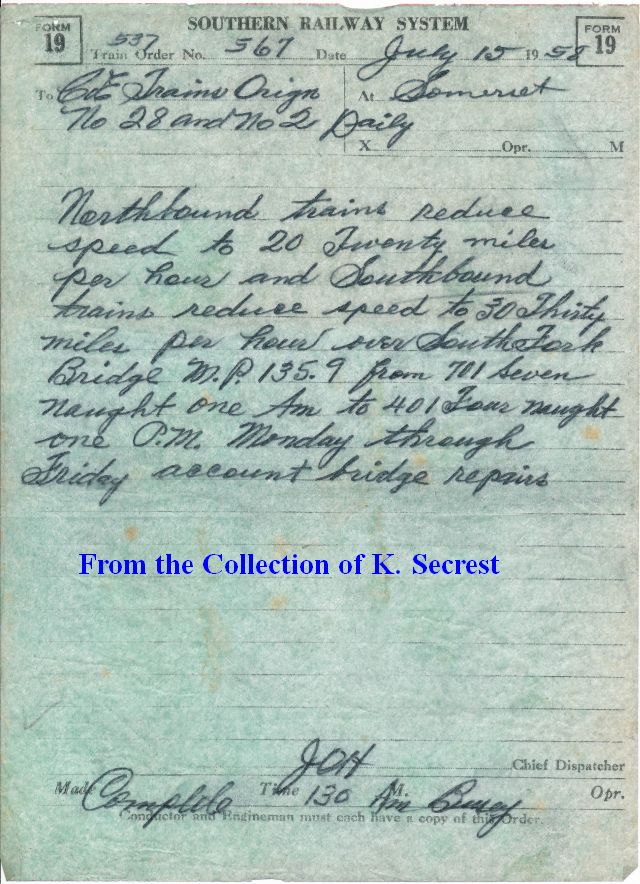 SOUTHERN RAILWAY SYSTEM
FORM 19
FORM 19
537
Train Order No. 567 Date July 15 1958
To C&E Trains Orign At Somerset
No 28 and No 2 Daily
X Opr. M
Northbound trains reduce
speed to 20 Twenty miles
per hour and Southbound
trains reduce speed to 30 Thirty
miles per hour over South Fork
Bridge M.P. 135.9 from 701 Seven
naught one Am to 401 Four naught
one P.M. Monday through
Friday account bridge repairs
From the Collection of K. Secrest
JOH Chief Dispatcher
Made Complete Time 130 Am M. Opr.
Conductor and Engineman must each have a copy of this Order.